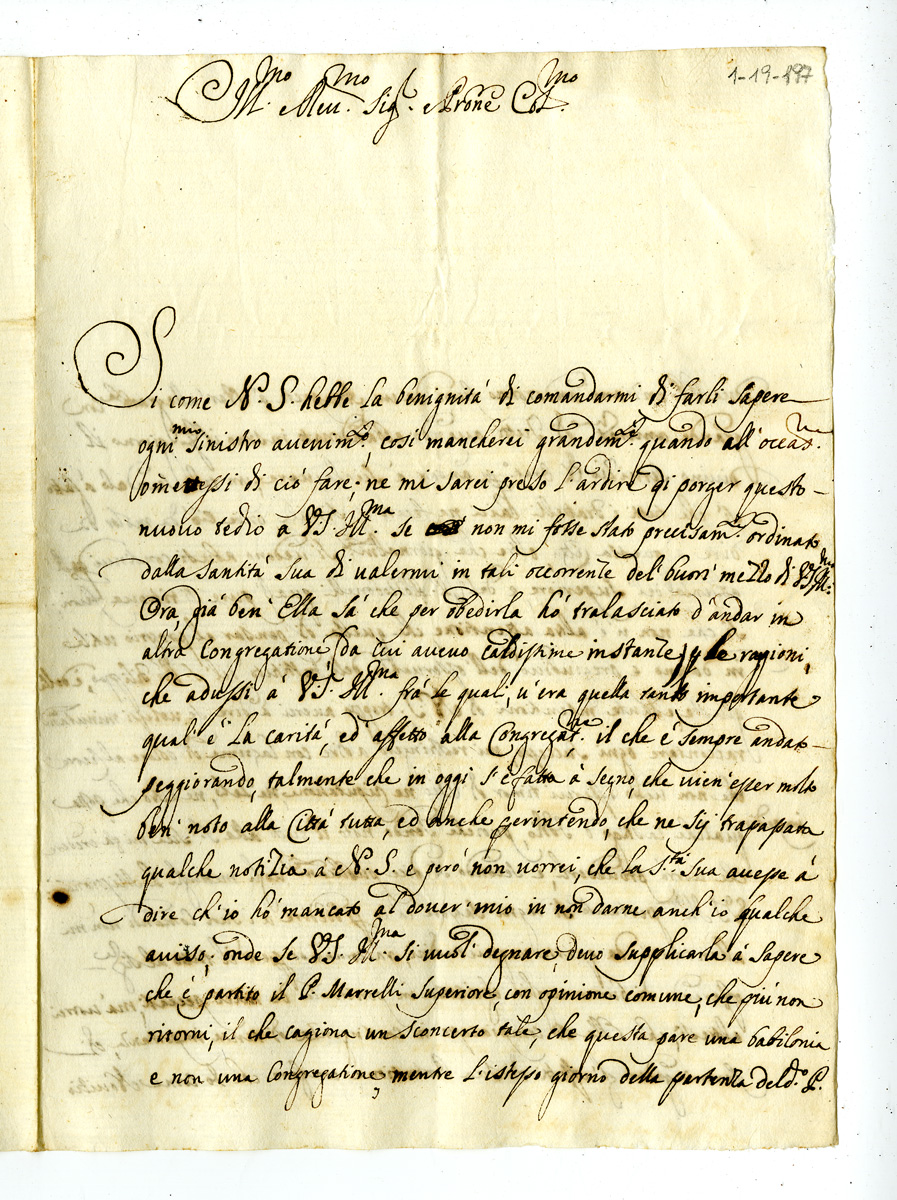 1-19-197
Ill.mo Reu.mo Sig.r Prone Col.mo
Si come N. S. hebbe la benignitá di comandarmi di farli sapere
ogni mio sinistro auenim.to, cosi mancherei grandem.te quando all'occas.ne
omettessi di ció fare; ne mi sarei preso l'ardire di porger questo
nuouo tedio a V.S. Ill.ma se non mi fosse stato precisam.te ordinato
dalla santitá sua di ualermi in tali occorrenze del' buon' mezzo di V.S. Ill.ma
Ora, giá ben' Ella sá che per obedirla hó tralasciato d'andar in
altra Congregatione (da cui aueuo caldissime instanze) p le ragioni,
che adussi á V.S. Ill.ma frá le quali, u'era quella tanto importante
qual' é la caritá, ed' affetto alla Congregat.ne il che é sempre andato
peggiorando, talmente che in oggi s'é fatta á segno, che uien' esser molto
ben' noto alla Cittá tutta, ed anche perintendo, che ne sij trapassata
qualche notizia á N. S. e peró non uorrei, che la S.tá sua auesse á
dire ch'io hó mancato al douer' mio in non darne anch'io qualche
auiso; onde se V.S. Ill.ma si uuol' degnare, deuo supplicarla á sapere
che é partito il P. Marrelli Superiore, con opinione comune, che piú non
ritorni, il che cagiona un sconcerto tale, che questa pare una babilonia
e non una Congregatione, mentre l'istesso giorno della partenza deld.o P.